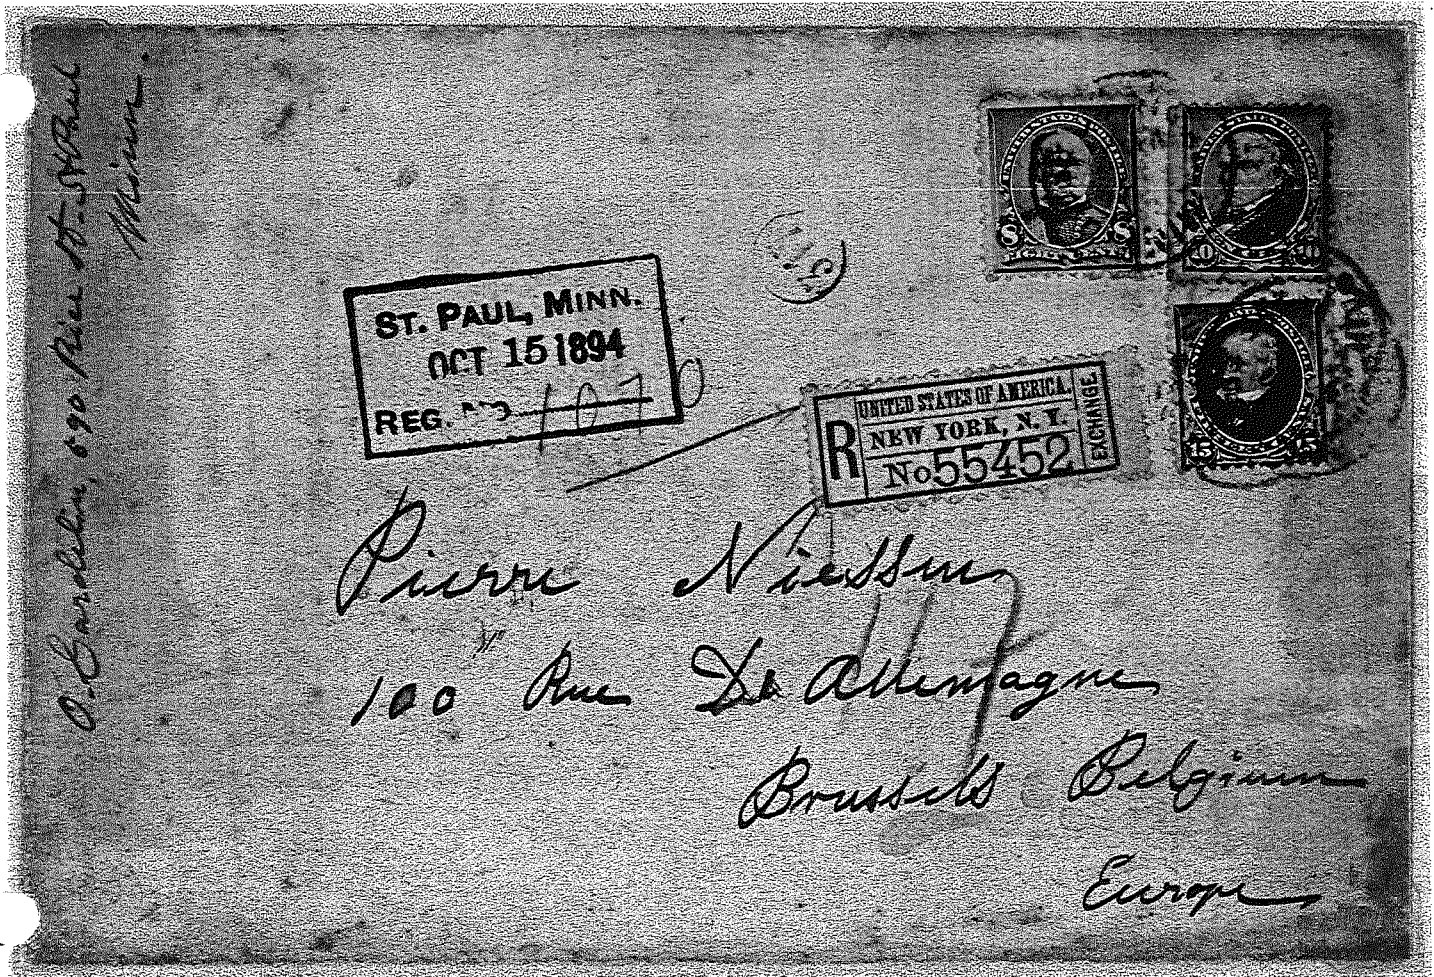 O. Gardelin, 690 Rice St. St Paul
Minn.
8 8
10 10
5 5
ST. PAUL, MINN.
OCT 15 1894
REG. NO 1070
R
UNITED STATES OF AMERICA.
NEW YORK, N. Y.
No 55452
EXCHANGE.
Pierre Niessen
100 Rue De Allemagne
Brussels Belgium
Europe